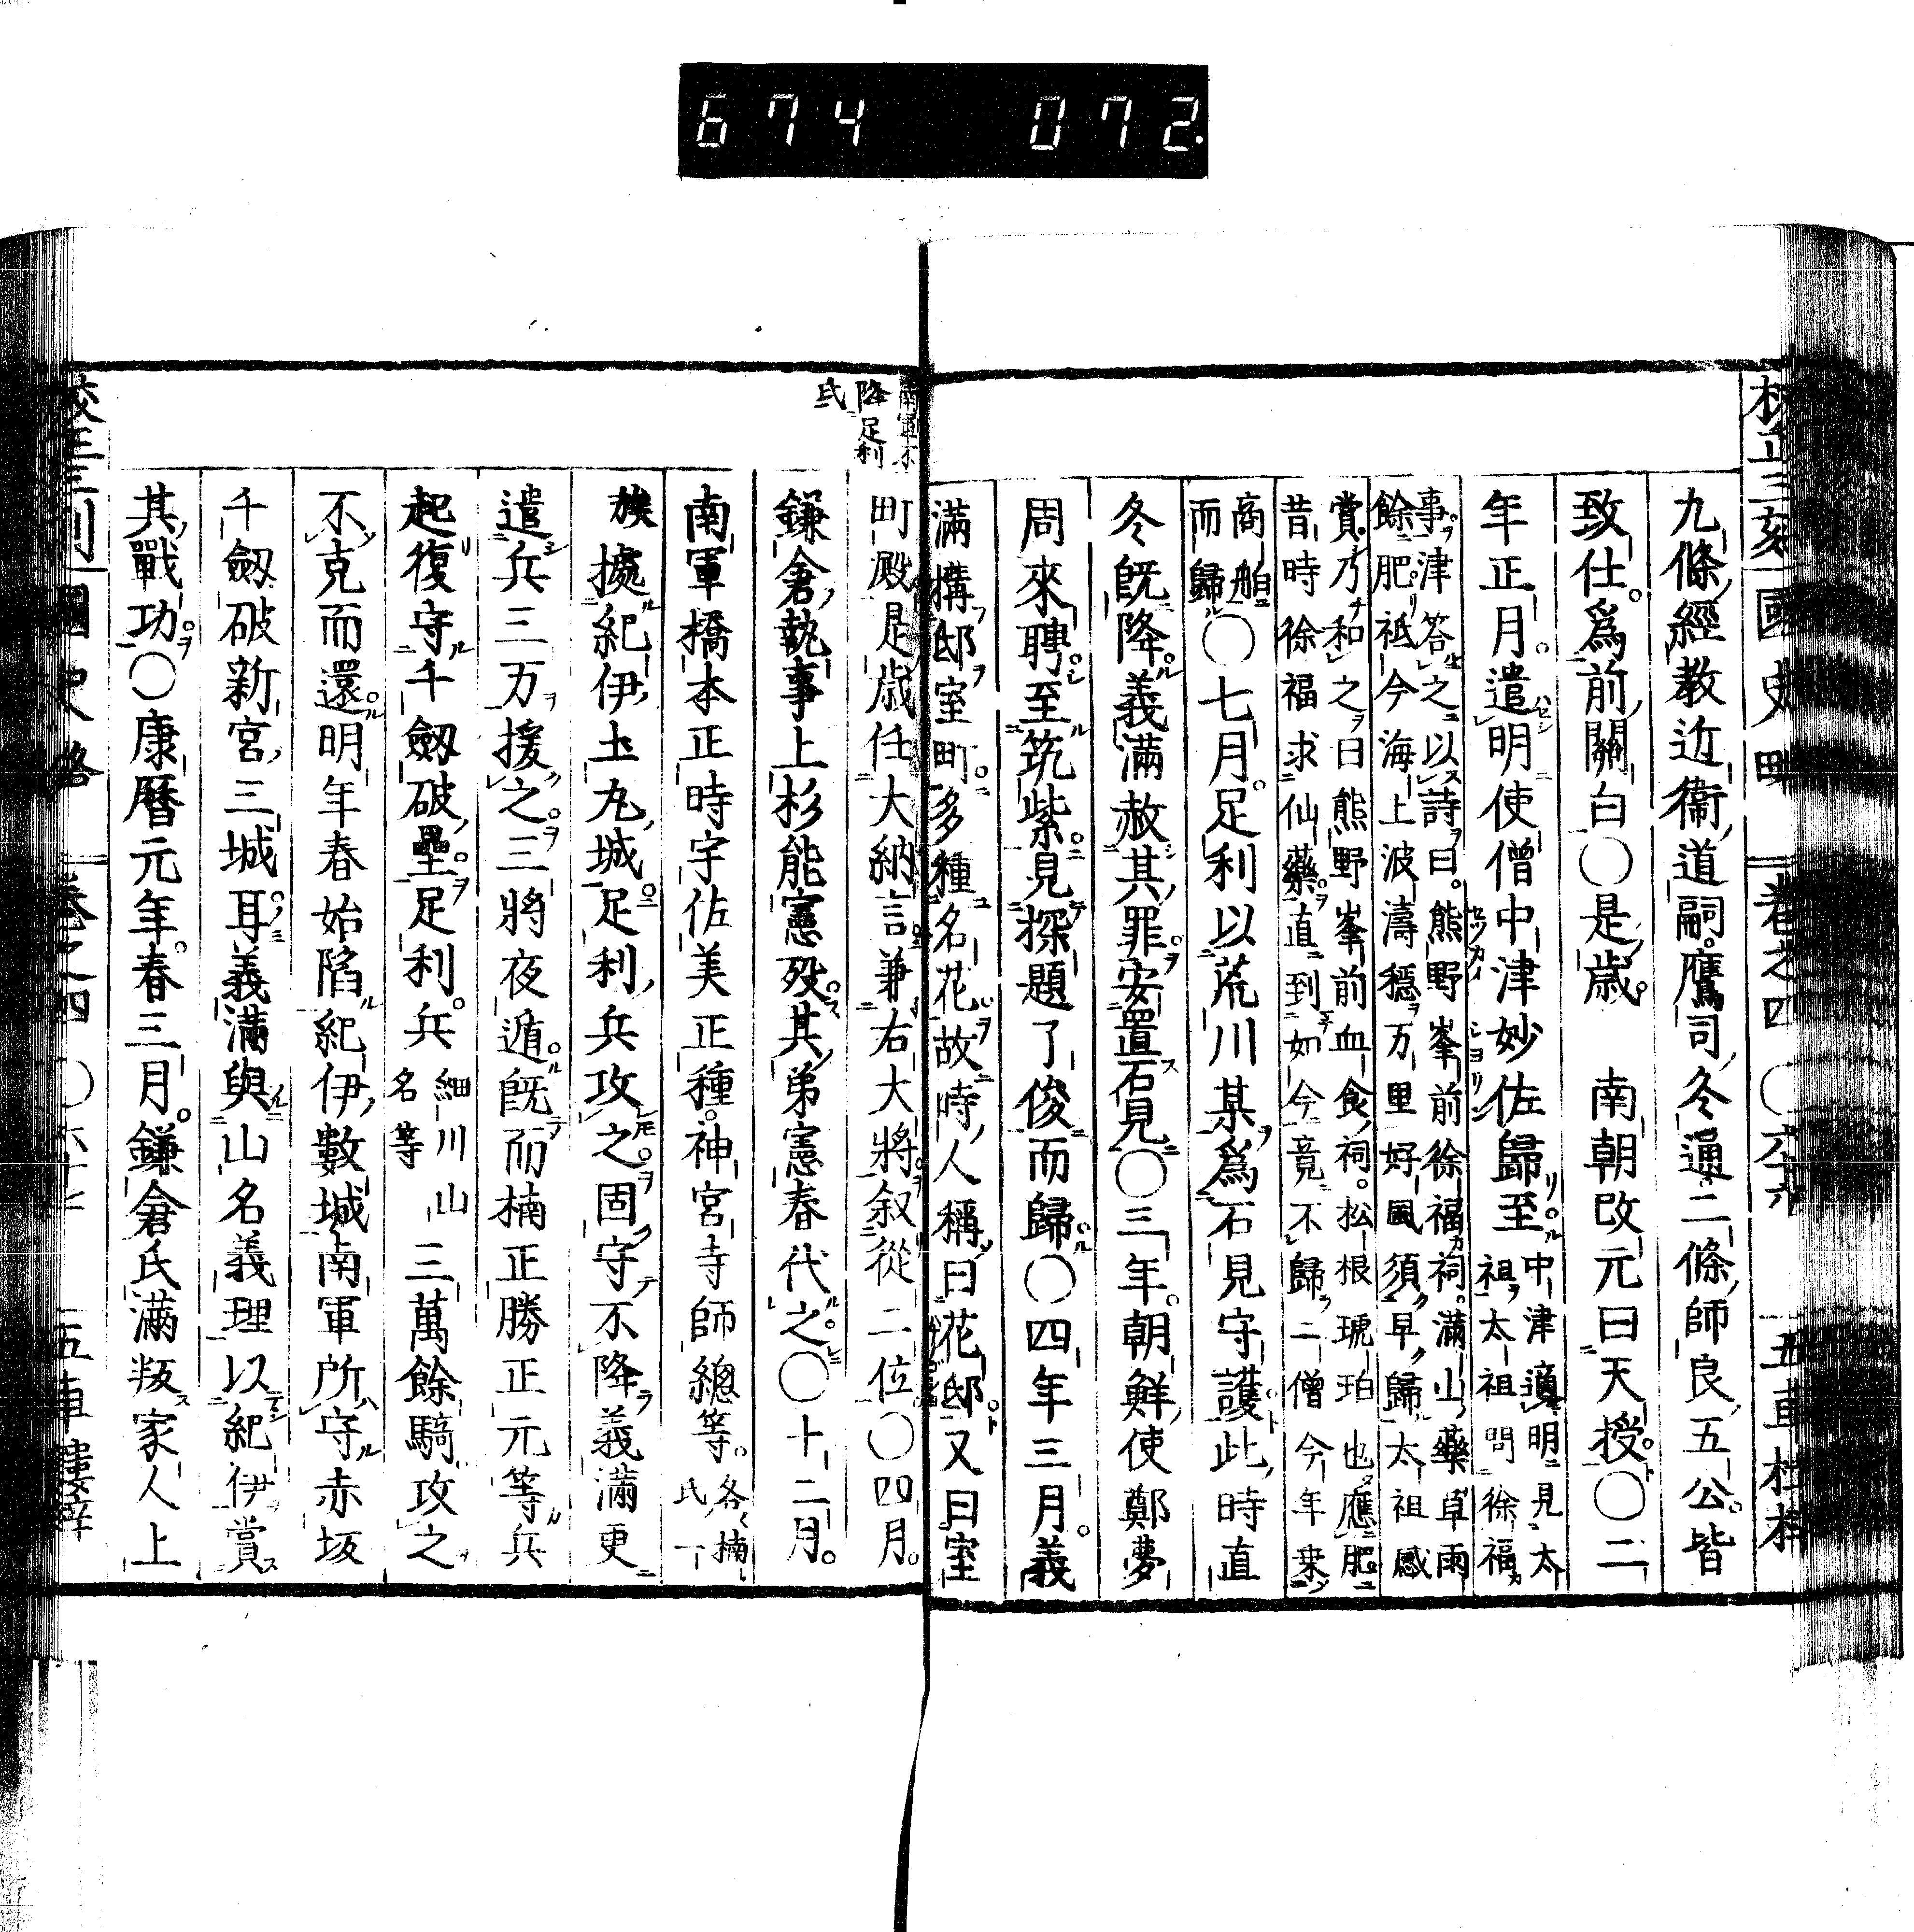 674 072
校正三刻國史略 卷之四 〇六十六 五車樓梓
九條經教近衞道嗣鷹司冬通二條師良五公皆
致仕爲前關白〇是歳 南朝改元曰天授〇二
年正月遣明使僧中津妙佐歸至 中津適明見太
祖太祖問徐福
事津答之以詩曰熊野峯前徐福祠滿山藥草雨
餘肥祇今海上波濤穩万里好風須早歸太祖感
賞乃和之曰熊野峯前血食祠松根琥珀也應肥
昔時徐福求仙藥直到如今竟不歸二僧今年乗
商舶
而歸 〇七月足利以荒川某爲石見守護此時直
冬既降義滿赦其罪安置石見〇三年朝鮮使鄭夢
周來聘至筑紫見探題了俊而歸〇四年三月義
滿構邸室町多種名花故時人稱曰花邸又曰室
南軍不
降足利
氏
町殿是歳任大納言兼右大將叙從二位〇四月
鎌倉執事上杉能憲殁其弟憲春代之〇十二月
南軍橋本正時宇佐美正種神宮寺師總等 各楠
氏一
族 據紀伊土丸城足利兵攻之固守不降義滿更
遣兵三万援之三將夜遁既而楠正勝正元等兵
起復守千劔破壘足利兵 細川山
名等 三萬餘騎攻之
不克而還明年春始陷紀伊數城南軍所守赤坂
千劔破新宮三城耳義滿與山名義理以紀伊賞
其戰功〇康曆元年春三月鎌倉氏滿叛家人上
校正三刻國史略 卷之四 〇 五車樓梓